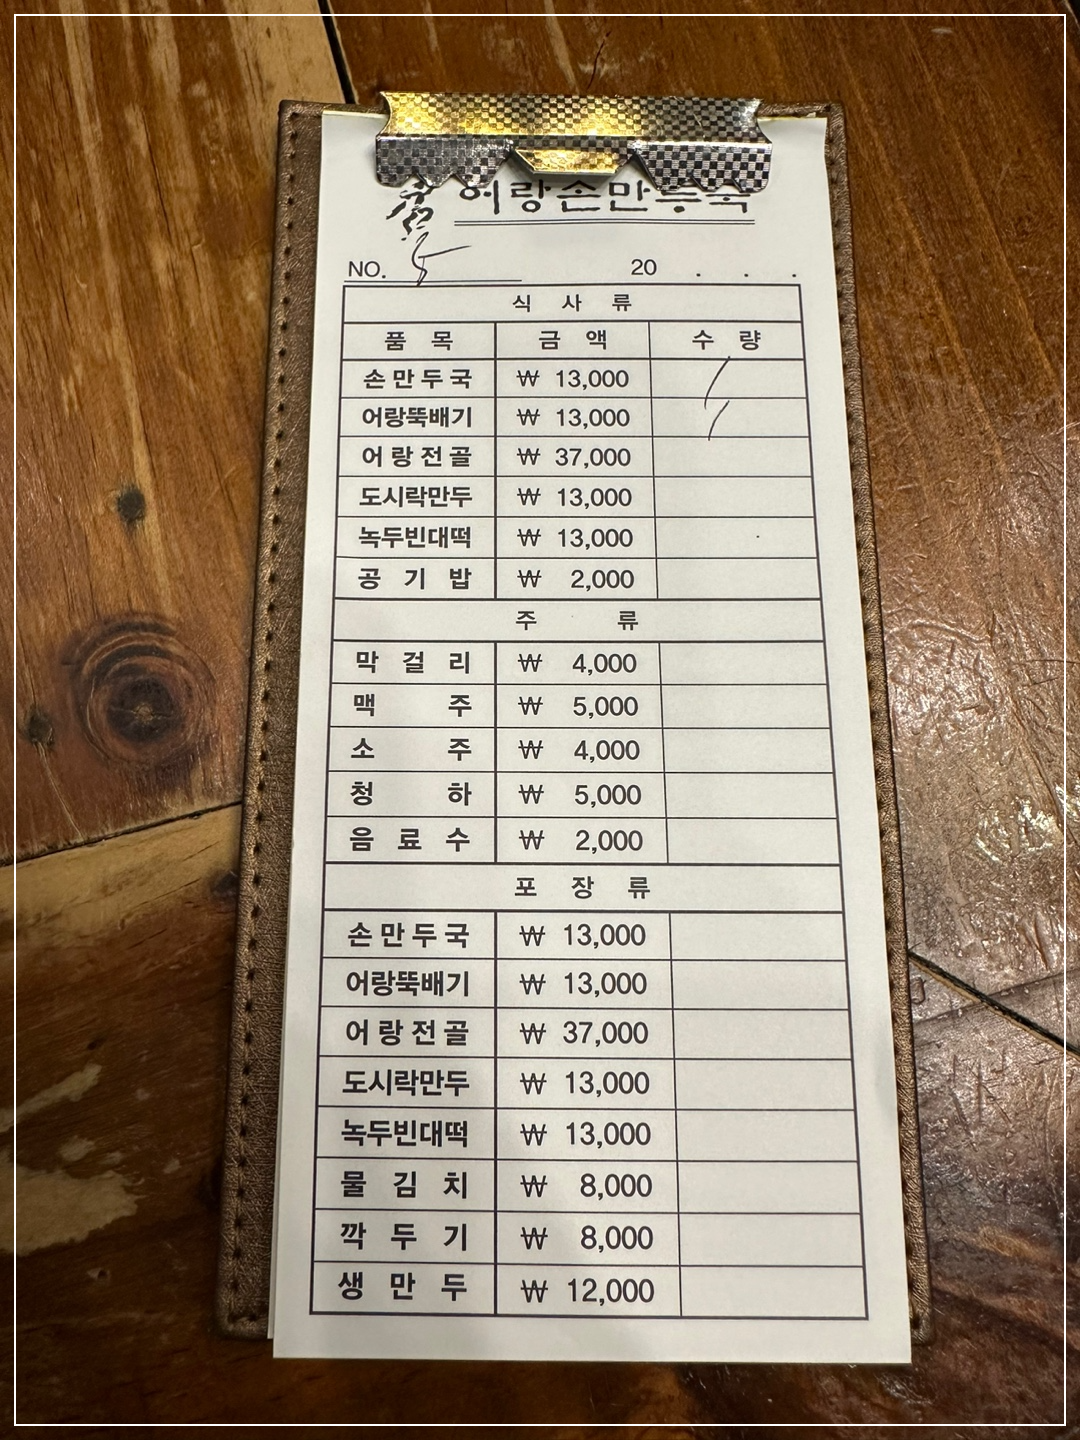 어랑손만두국
NO. 5 20 . . .
식 사 류
품 목 금 액 수 량
손만두국 ₩ 13,000 /
어랑뚝배기 ₩ 13,000 /
어랑전골 ₩ 37,000
도시락만두 ₩ 13,000
녹두빈대떡 ₩ 13,000
공 기 밥 ₩ 2,000
주 류
막 걸 리 ₩ 4,000
맥 주 ₩ 5,000
소 주 ₩ 4,000
청 하 ₩ 5,000
음 료 수 ₩ 2,000
포 장 류
손만두국 ₩ 13,000
어랑뚝배기 ₩ 13,000
어랑전골 ₩ 37,000
도시락만두 ₩ 13,000
녹두빈대떡 ₩ 13,000
물 김 치 ₩ 8,000
깍 두 기 ₩ 8,000
생 만 두 ₩ 12,000